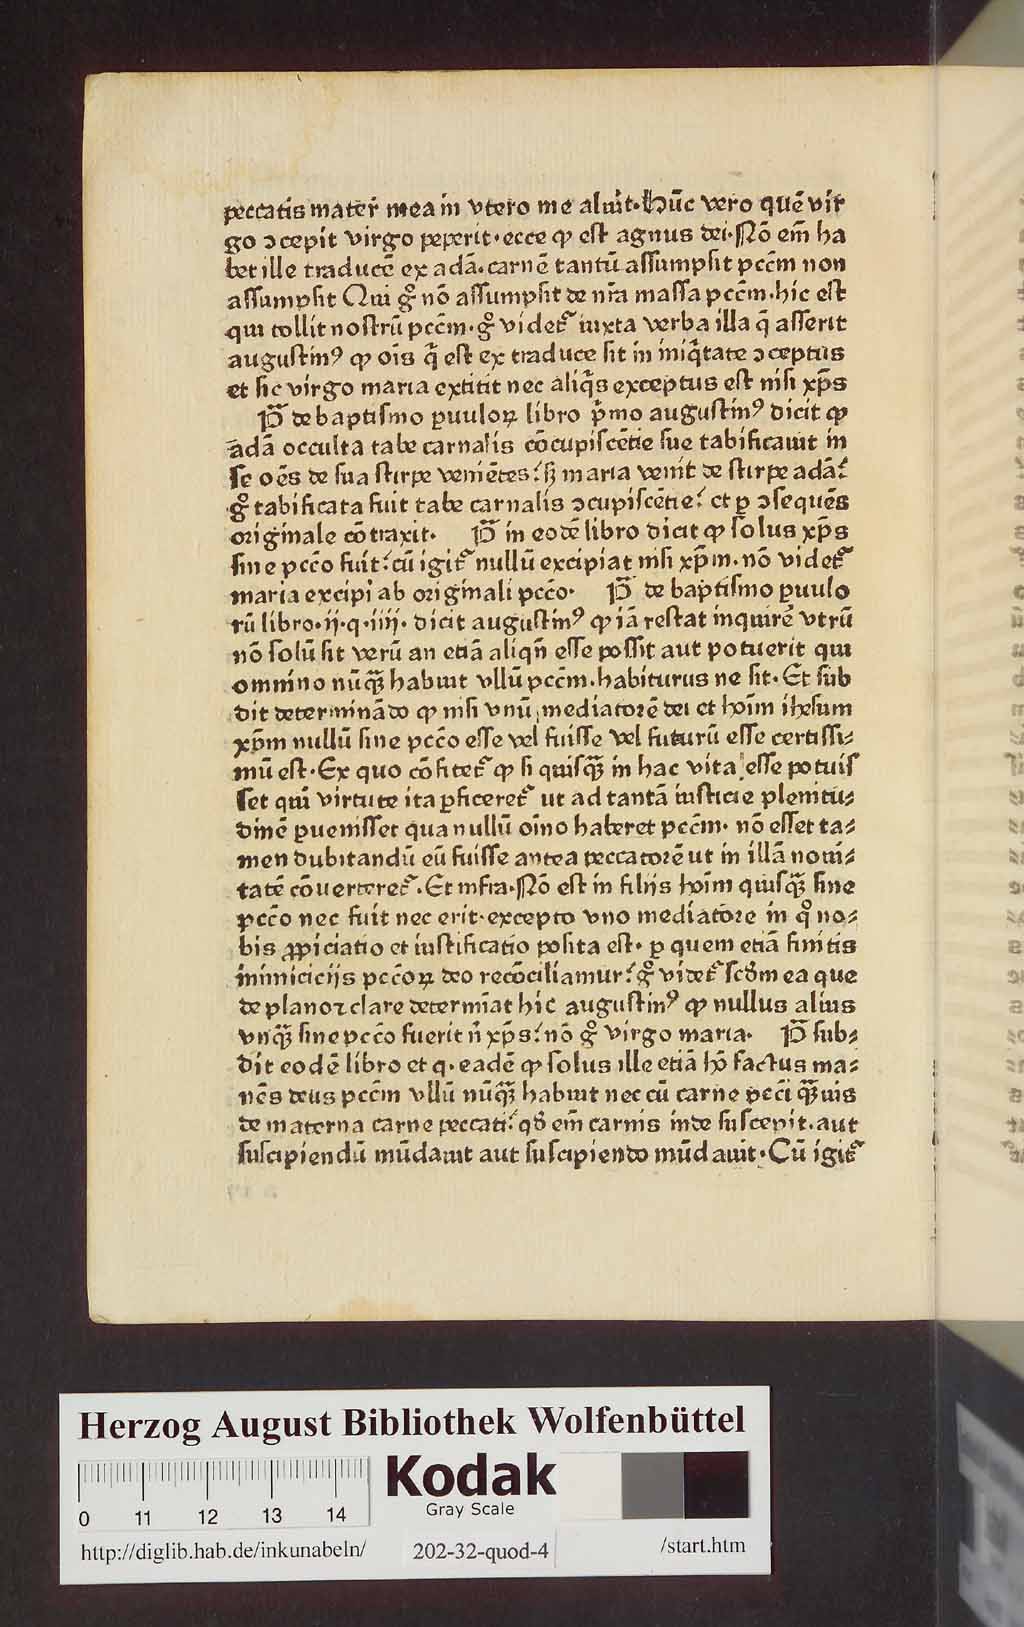 peccatis mater̃ mea in vtero me aluit·Hũc vero quẽ vir
go ɔcepit virgo peperit·ecce ꝙ est agnus dei·Nõ em̃ ha
bet ille traducẽ ex adã·carnẽ tantũ assumpsit pctm̃ non
assumpsit Qui gͦ nõ assumpsit de nr̃a massa pctm̃·hic est
qui tollit nostrũ pctm̃·gͦ videt᷑ iuxta verba illa q̃ asserit
augustinꝰ ꝙ oĩs q̃ est ex traduce sit in iniq̃tate ɔceptus
et sic virgo maria extitit nec aliq̃s exceptus est nisi xp̃s
Pͣ de baptismo ꝑuuloꝝ libro pͥmo augustinꝰ dicit ꝙ
adã occulta tabe carnalis cõcupiscẽtie sue tabificauit in
se oẽs de sua stirpe veniẽtes: sꝫ maria venit de stirpe adã:
gͦ tabificata fuit tabe carnalis ɔcupiscẽtie: et ꝑ ɔsequẽs
originale cõtraxit· Pͣ in eodẽ libro dicit ꝙ solus xp̃s
sine pctõ fuit: cũ igit᷑ nullũ excipiat nisi xp̃m·nõ videt᷑
maria excipi ab originali pctõ· Pͣ de baptismo ꝑuulo
rũ libro·ij·q·iiij· dicit augustinꝰ ꝙ iã restat inquirẽ vtrũ
nõ solũ sit verũ an etiã aliqñ esse possit aut potuerit qui
omnino nũqͣꝫ habuit vllũ pctm̃·habiturus ne sit·Et sub
dit determinãdo ꝙ nisi vnũ mediatorẽ dei et hoĩm ihesum
xp̃m nullũ sine pctõ esse vel fuisse vel futurũ esse certissi⸗
mũ est·Ex quo cõfitet᷑ ꝙ si quisqͣꝫ in hac vita esse potuis
set qui virtute ita ꝑficeret᷑ ut ad tantã iusticie plenitu⸗
dinẽ ꝑuenisset qua nullũ oĩno haberet pctm̃· nõ esset ta⸗
men dubitandũ eũ fuisse antea peccatorẽ ut in illã noui⸗
tatẽ cõuerteret᷑·Et infra·Nõ est in filijs hoĩm quisqͣꝫ sine
pctõ nec fuit nec erit·excepto vno mediatore in qͦ no⸗
bis ꝓpiciatio et iustificatio posita est· ꝑ quem etiã finitis
inimicicijs pctõꝝ deo recõciliamur: gͦ videt᷑ scd̃m ea que
de plano ⁊ clare determĩat hic augustinꝰ ꝙ nullus alius
vnqͣꝫ sine pctõ fuerit ñ xp̃s: nõ gͦ virgo maria· Pͣ sub⸗
dit eodẽ libro et q· eadẽ ꝙ solus ille etiã hõ factus ma⸗
nẽs deus pctm̃ vllũ nũqͣꝫ habuit nec cũ carne pctĩ qͣꝫuis
de materna carne peccati: qď em̃ carnis inde suscepit·aut
suscipiendũ mũdauit aut suscipiendo mũdauit·Cũ igit᷑
Herzog August Bibliothek Wolfenbüttel
Kodak
Gray Scale
0 11 12 13 14
http://diglib.hab.de/inkunabeln/ 202-32-quod-4 /start.htm